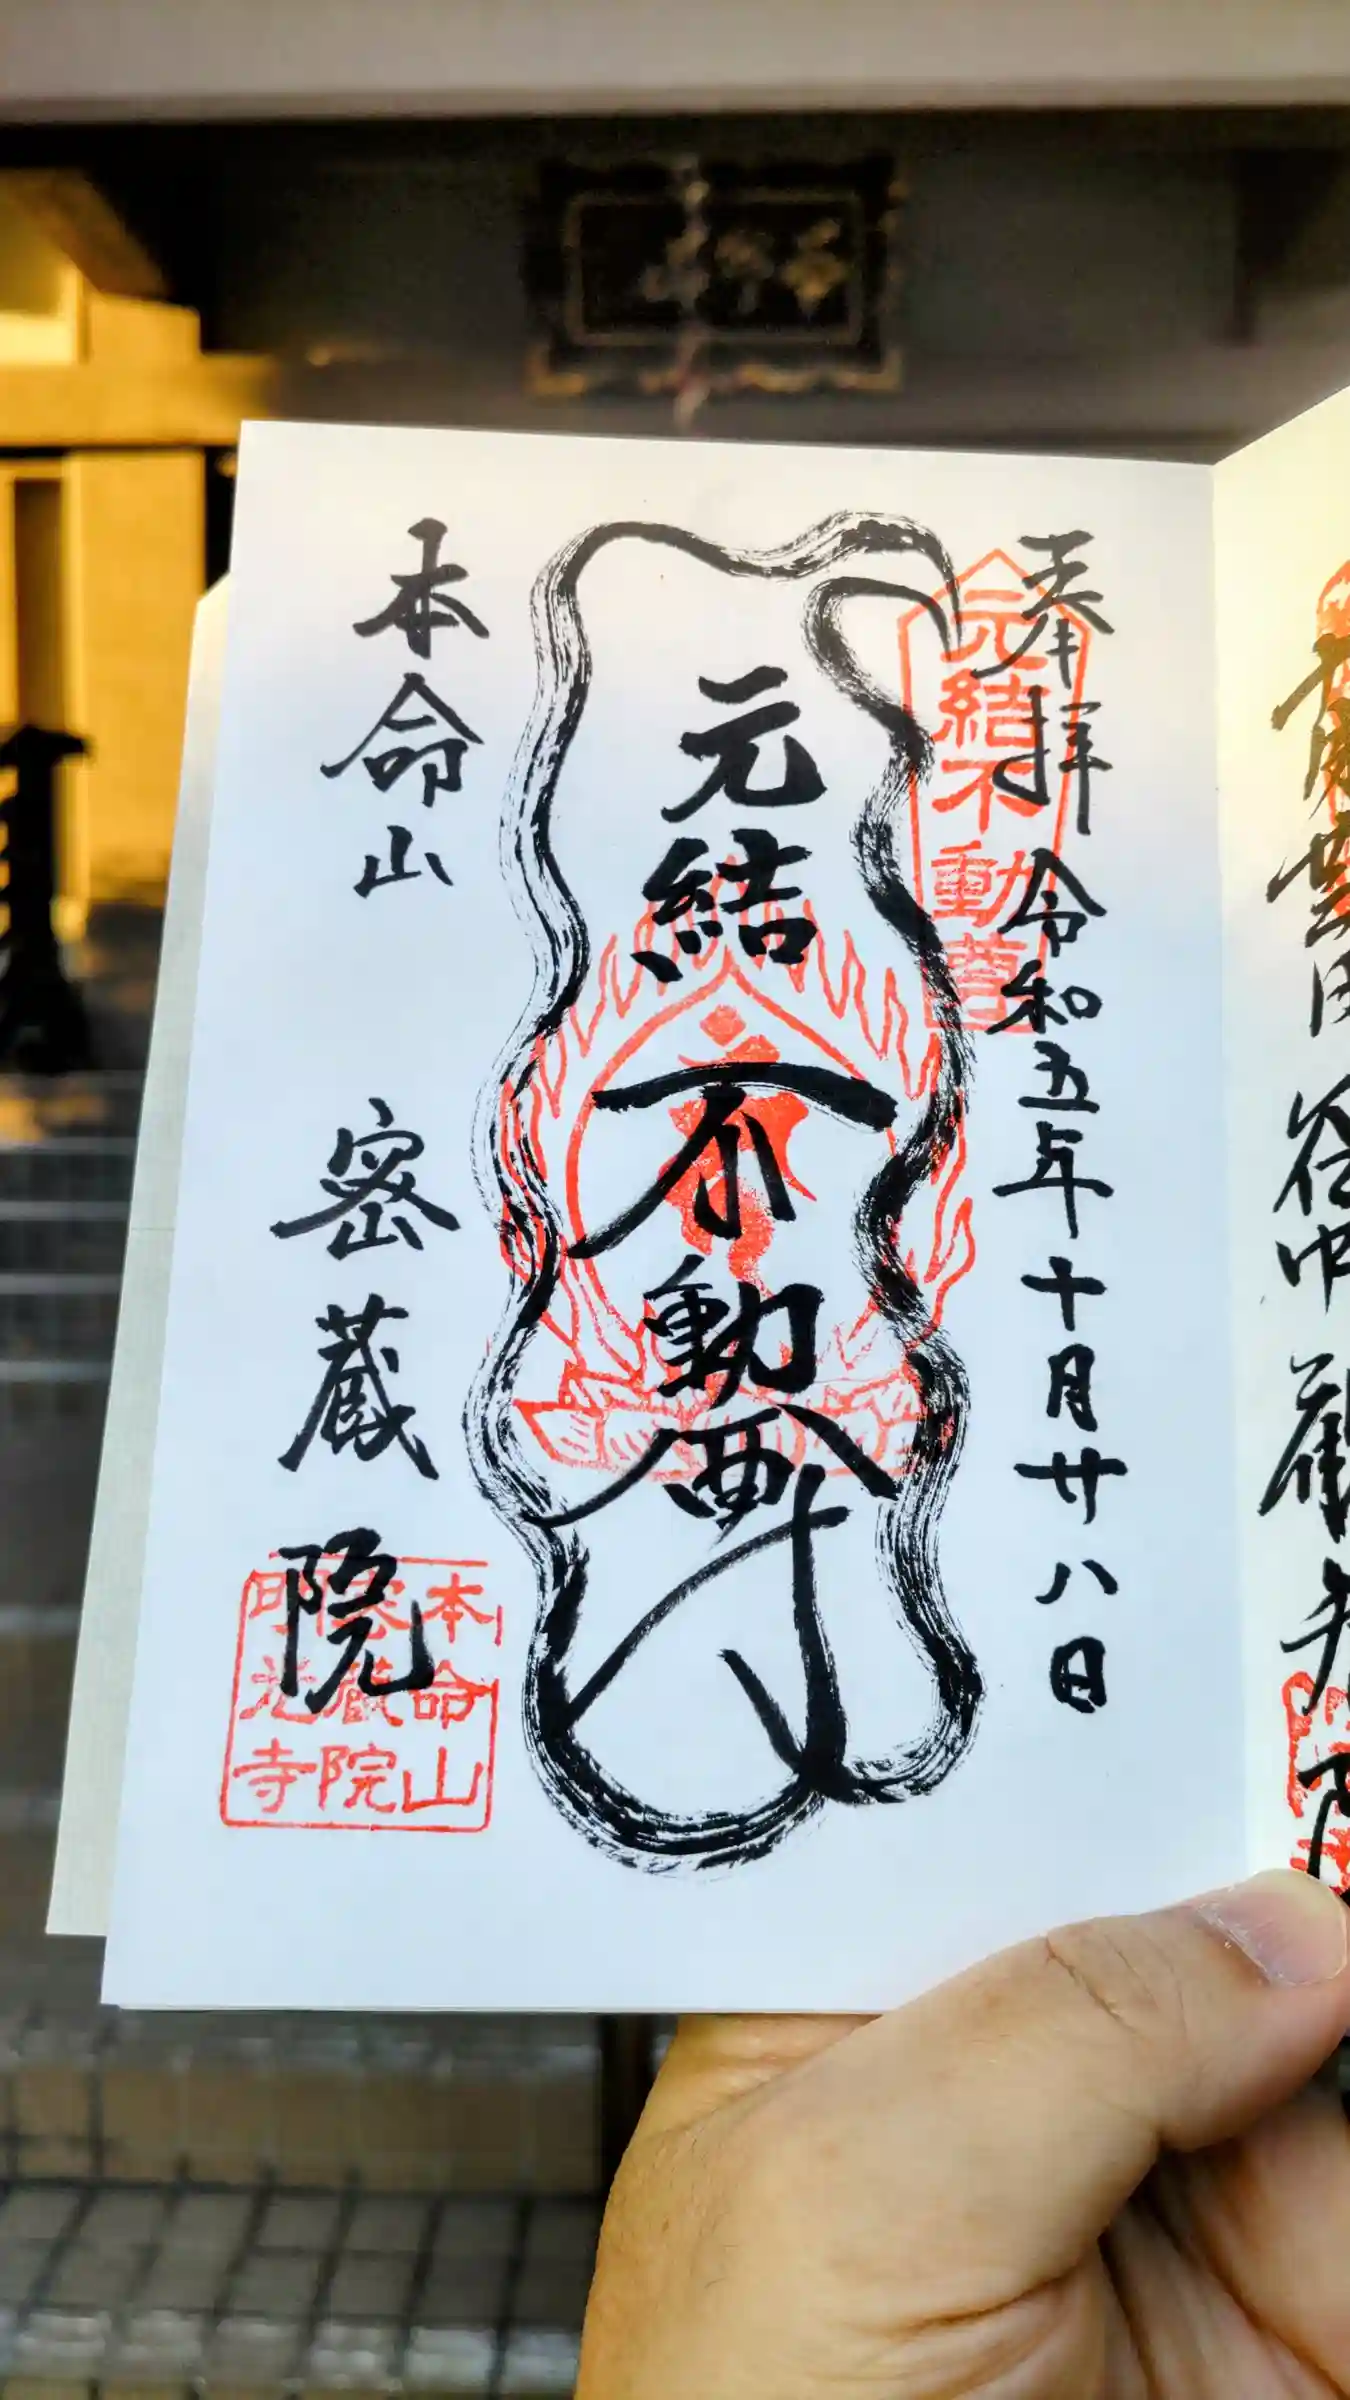 奉拝 令和五年十月廿八日
元結不動尊
元結不動尊
本命山 密蔵院
本命山
密蔵院
明光寺